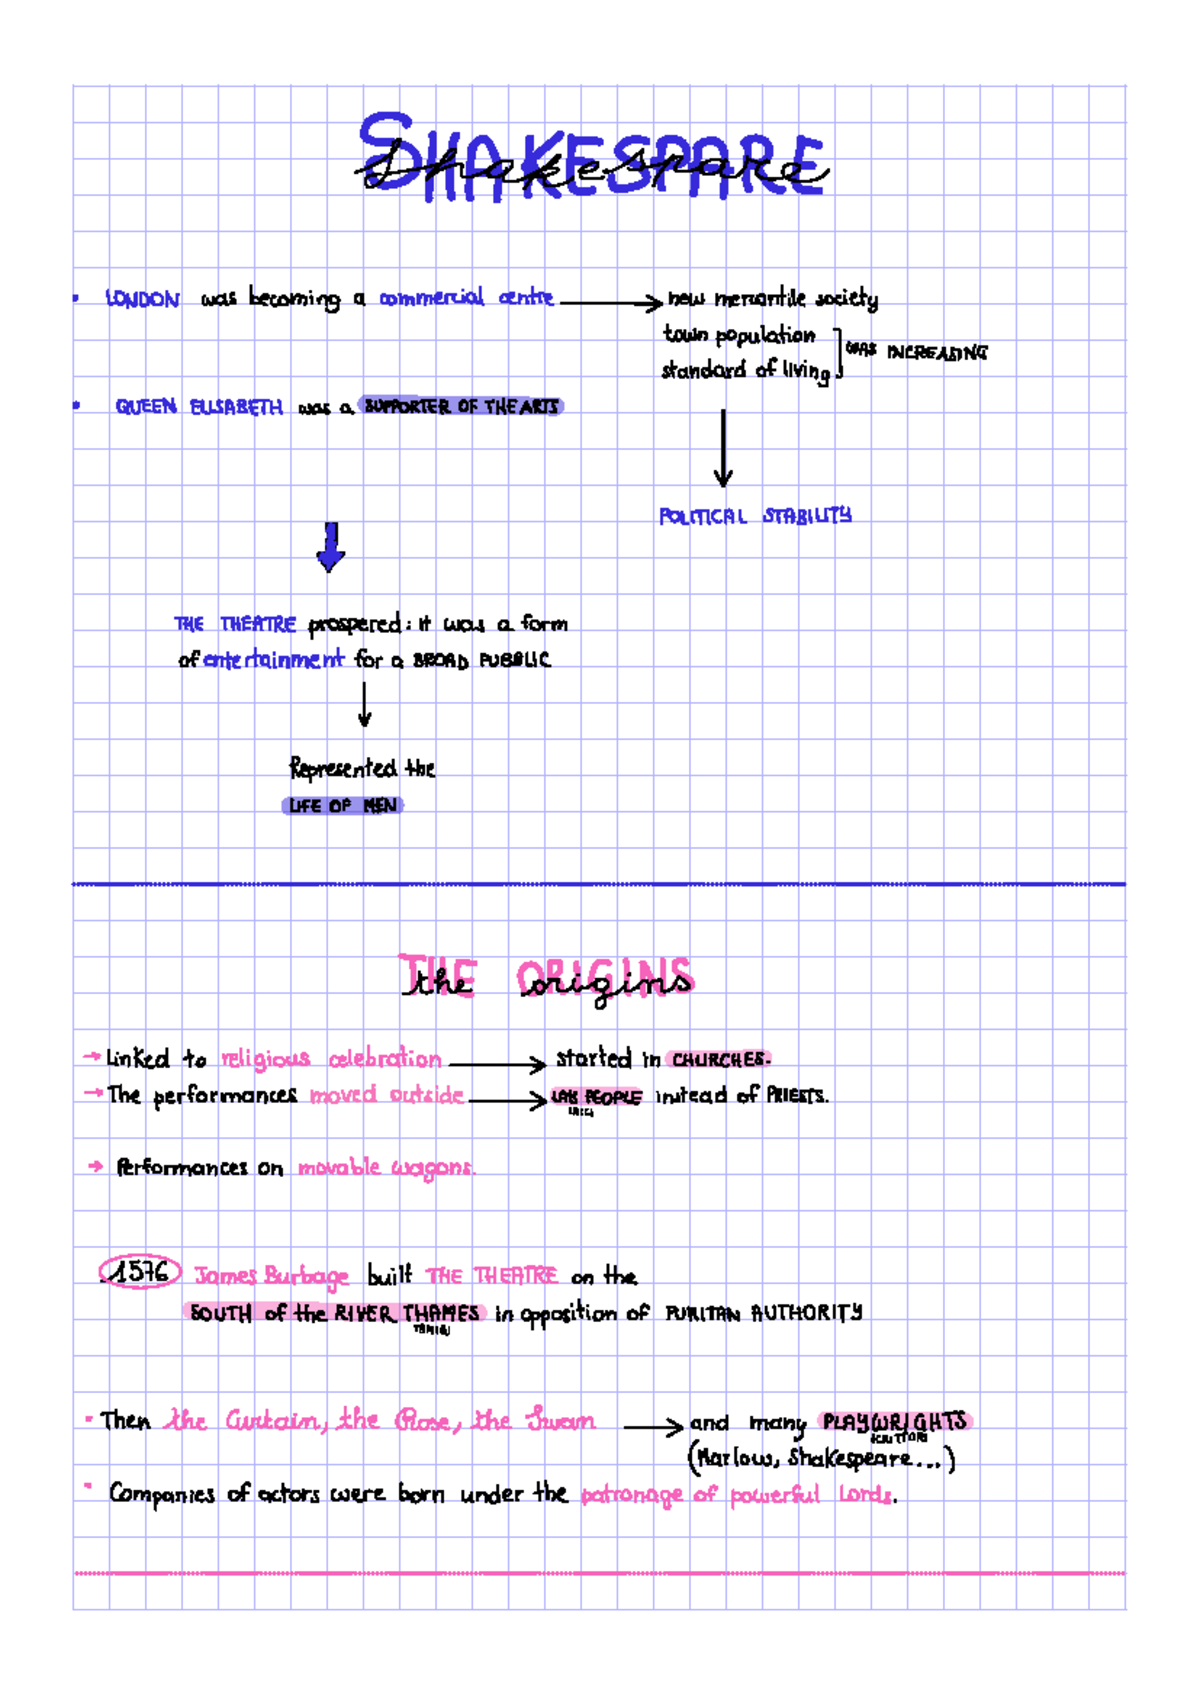 SHAKESPARE
Shakespare
• LONDON was becoming a commercial centre → new mercantile society
town population
standard of living ] WAS INCREASING
• QUEEN ELISABETH was a SUPPORTER OF THE ARTS
POLITICAL STABILITY
THE THEATRE prospered: it was a form
of entertainment for a BROAD PUBBLIC
Represented the
LIFE OF MEN
THE ORIGINS
the origins
→ Linked to religious celebration → started in CHURCHES.
→ The performances moved outside → LAY PEOPLE instead of PRIESTS.
LAICI
→ Performances on movable wagons.
1576 James Burbage built THE THEATRE on the
SOUTH of the RIVER THAMES in opposition of PURITAN AUTHORITY
TAMIGI
• Then the Curtain, the Rose, the Swan → and many PLAYWRIGHTS
SCRITTORI
(Marlow, Shakespeare...)
• Companies of actors were born under the patronage of powerful Lords.